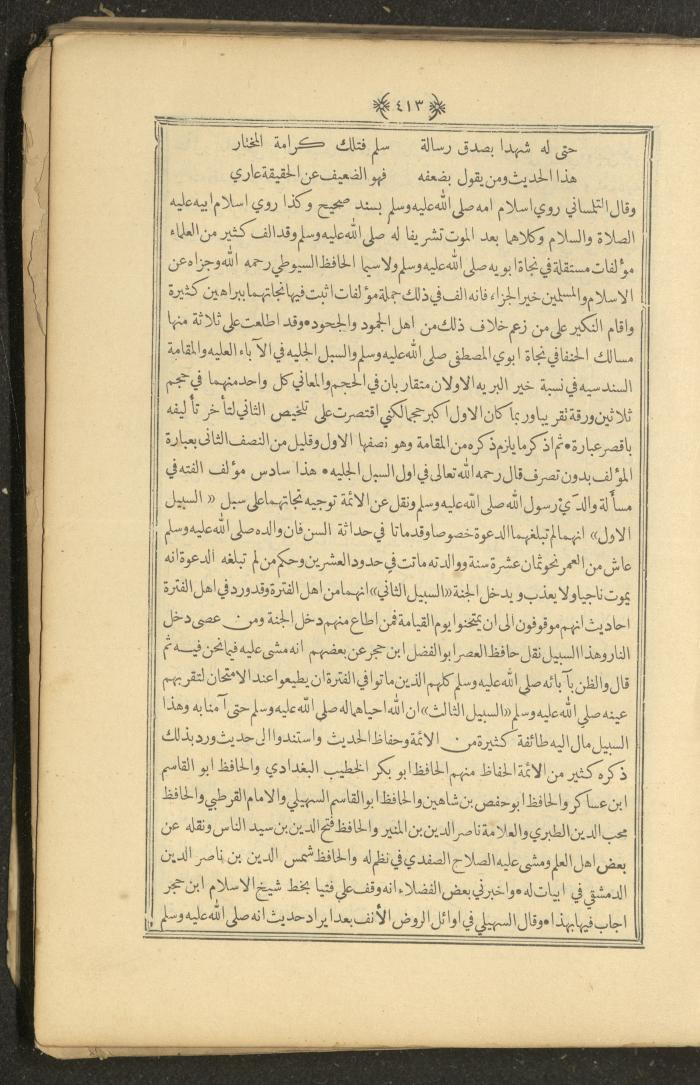 ٤١٣
حتى له شهدا بصدق رسالة سلم فتلك كرامة المختار
هذا الحديث ومن يقول بضعفه فهو الضعيف عن الحقيقة عاري
وقال التلمساني روي اسلام امه صلى الله عليه وسلم بسند صحيح وكذا روي اسلام ابيه عليه
الصلاة والسلام وكلاهما بعد الموت تشريفا له صلى الله عليه وسلم وقد الف كثير من العلماء
مؤلفات مستقلة في نجاة ابويه صلى الله عليه وسلم ولا سيما الحافظ السيوطي رحمه الله وجزاه عن
الاسلام والمسلمين خير الجزاء فانه الف في ذلك جملة مؤلفات اثبت فيها نجاتهما ببراهين كثيرة
واقام النكير على من زعم خلاف ذلك من اهل الجمود والجحود * وقد اطلعت على ثلاثة منها
مسالك الحنفا في نجاة ابوي المصطفى صلى الله عليه وسلم والسبل الجليه في الآباء العليه والمقامة
السندسيه في نسبة خير البريه الاولان متقاربان في الحجم والمعاني كل واحد منهما في حجم
ثلاثين ورقة تقريبا وربما كان الاول اكبر حجما لكني اقتصرت على تلخيص الثاني لتأخر تأليفه
باقصر عبارة * ثم اذكر ما يلزم ذكره من المقامة وهو نصفها الاول وقليل من النصف الثاني بعبارة
المؤلف بدون تصرف قال رحمه الله تعالى في اول السبل الجليه * هذا سادس مؤلف الفته في
مسألة والدَيْ رسول الله صلى الله عليه وسلم ونقل عن الائمة توجيه نجاتهما على سبل « السبيل
الاول» انهما لم تبلغهما الدعوة خصوصا وقد ماتا في حداثة السن فان والده صلى الله عليه وسلم
عاش من العمر نحو ثمان عشرة سنة ووالدته ماتت في حدود العشرين وحكم من لم تبلغه الدعوة انه
يموت ناجيا ولا يعذب ويدخل الجنة «السبيل الثاني» انهما من اهل الفترة وقد ورد في اهل الفترة
احاديث انهم موقوفون الى ان يمتحنوا يوم القيامة فمن اطاع منهم دخل الجنة ومن عصى دخل
النار وهذا السبيل نقل حافظ العصر ابو الفضل ابن حجر عن بعضهم انه مشى عليه فيما نحن فيه ثم
قال والظن بآبائه صلى الله عليه وسلم كلهم الذين ماتوا في الفترة ان يطيعوا عند الامتحان لتقر بهم
عينه صلى الله عليه وسلم «السبيل الثالث» ان الله احياهما له صلى الله عليه وسلم حتى آمنا به وهذا
السبيل مال اليه طائفة كثيرة من الائمة وحفاظ الحديث واستندوا الى حديث ورد بذلك
ذكره كثير من الائمة الحفاظ منهم الحافظ ابو بكر الخطيب البغدادي والحافظ ابو القاسم
ابن عساكر والحافظ ابو حفص بن شاهين والحافظ ابو القاسم السهيلي والامام القرطبي والحافظ
محب الدين الطبري والعلامة ناصر الدين بن المنير والحافظ فتح الدين بن سيد الناس ونقله عن
بعض اهل العلم ومشى عليه الصلاح الصفدي في نظم له والحافظ شمس الدين بن ناصر الدين
الدمشقي في ابيات له * واخبرني بعض الفضلاء انه وقف على فتيا بخط شيخ الاسلام ابن حجر
اجاب فيها بهذا * وقال السهيلي في اوائل الروض الأنف بعد ايراد حديث انه صلى الله عليه وسلم